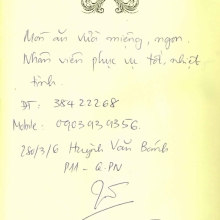 Món ăn vừa miệng, ngon.
Nhân viên phục vụ tốt, nhiệt
tình.
ĐT: 38422268
Mobile: 0903939356.
280/3/6 Huỳnh Văn Bánh
P11 - Q.PN